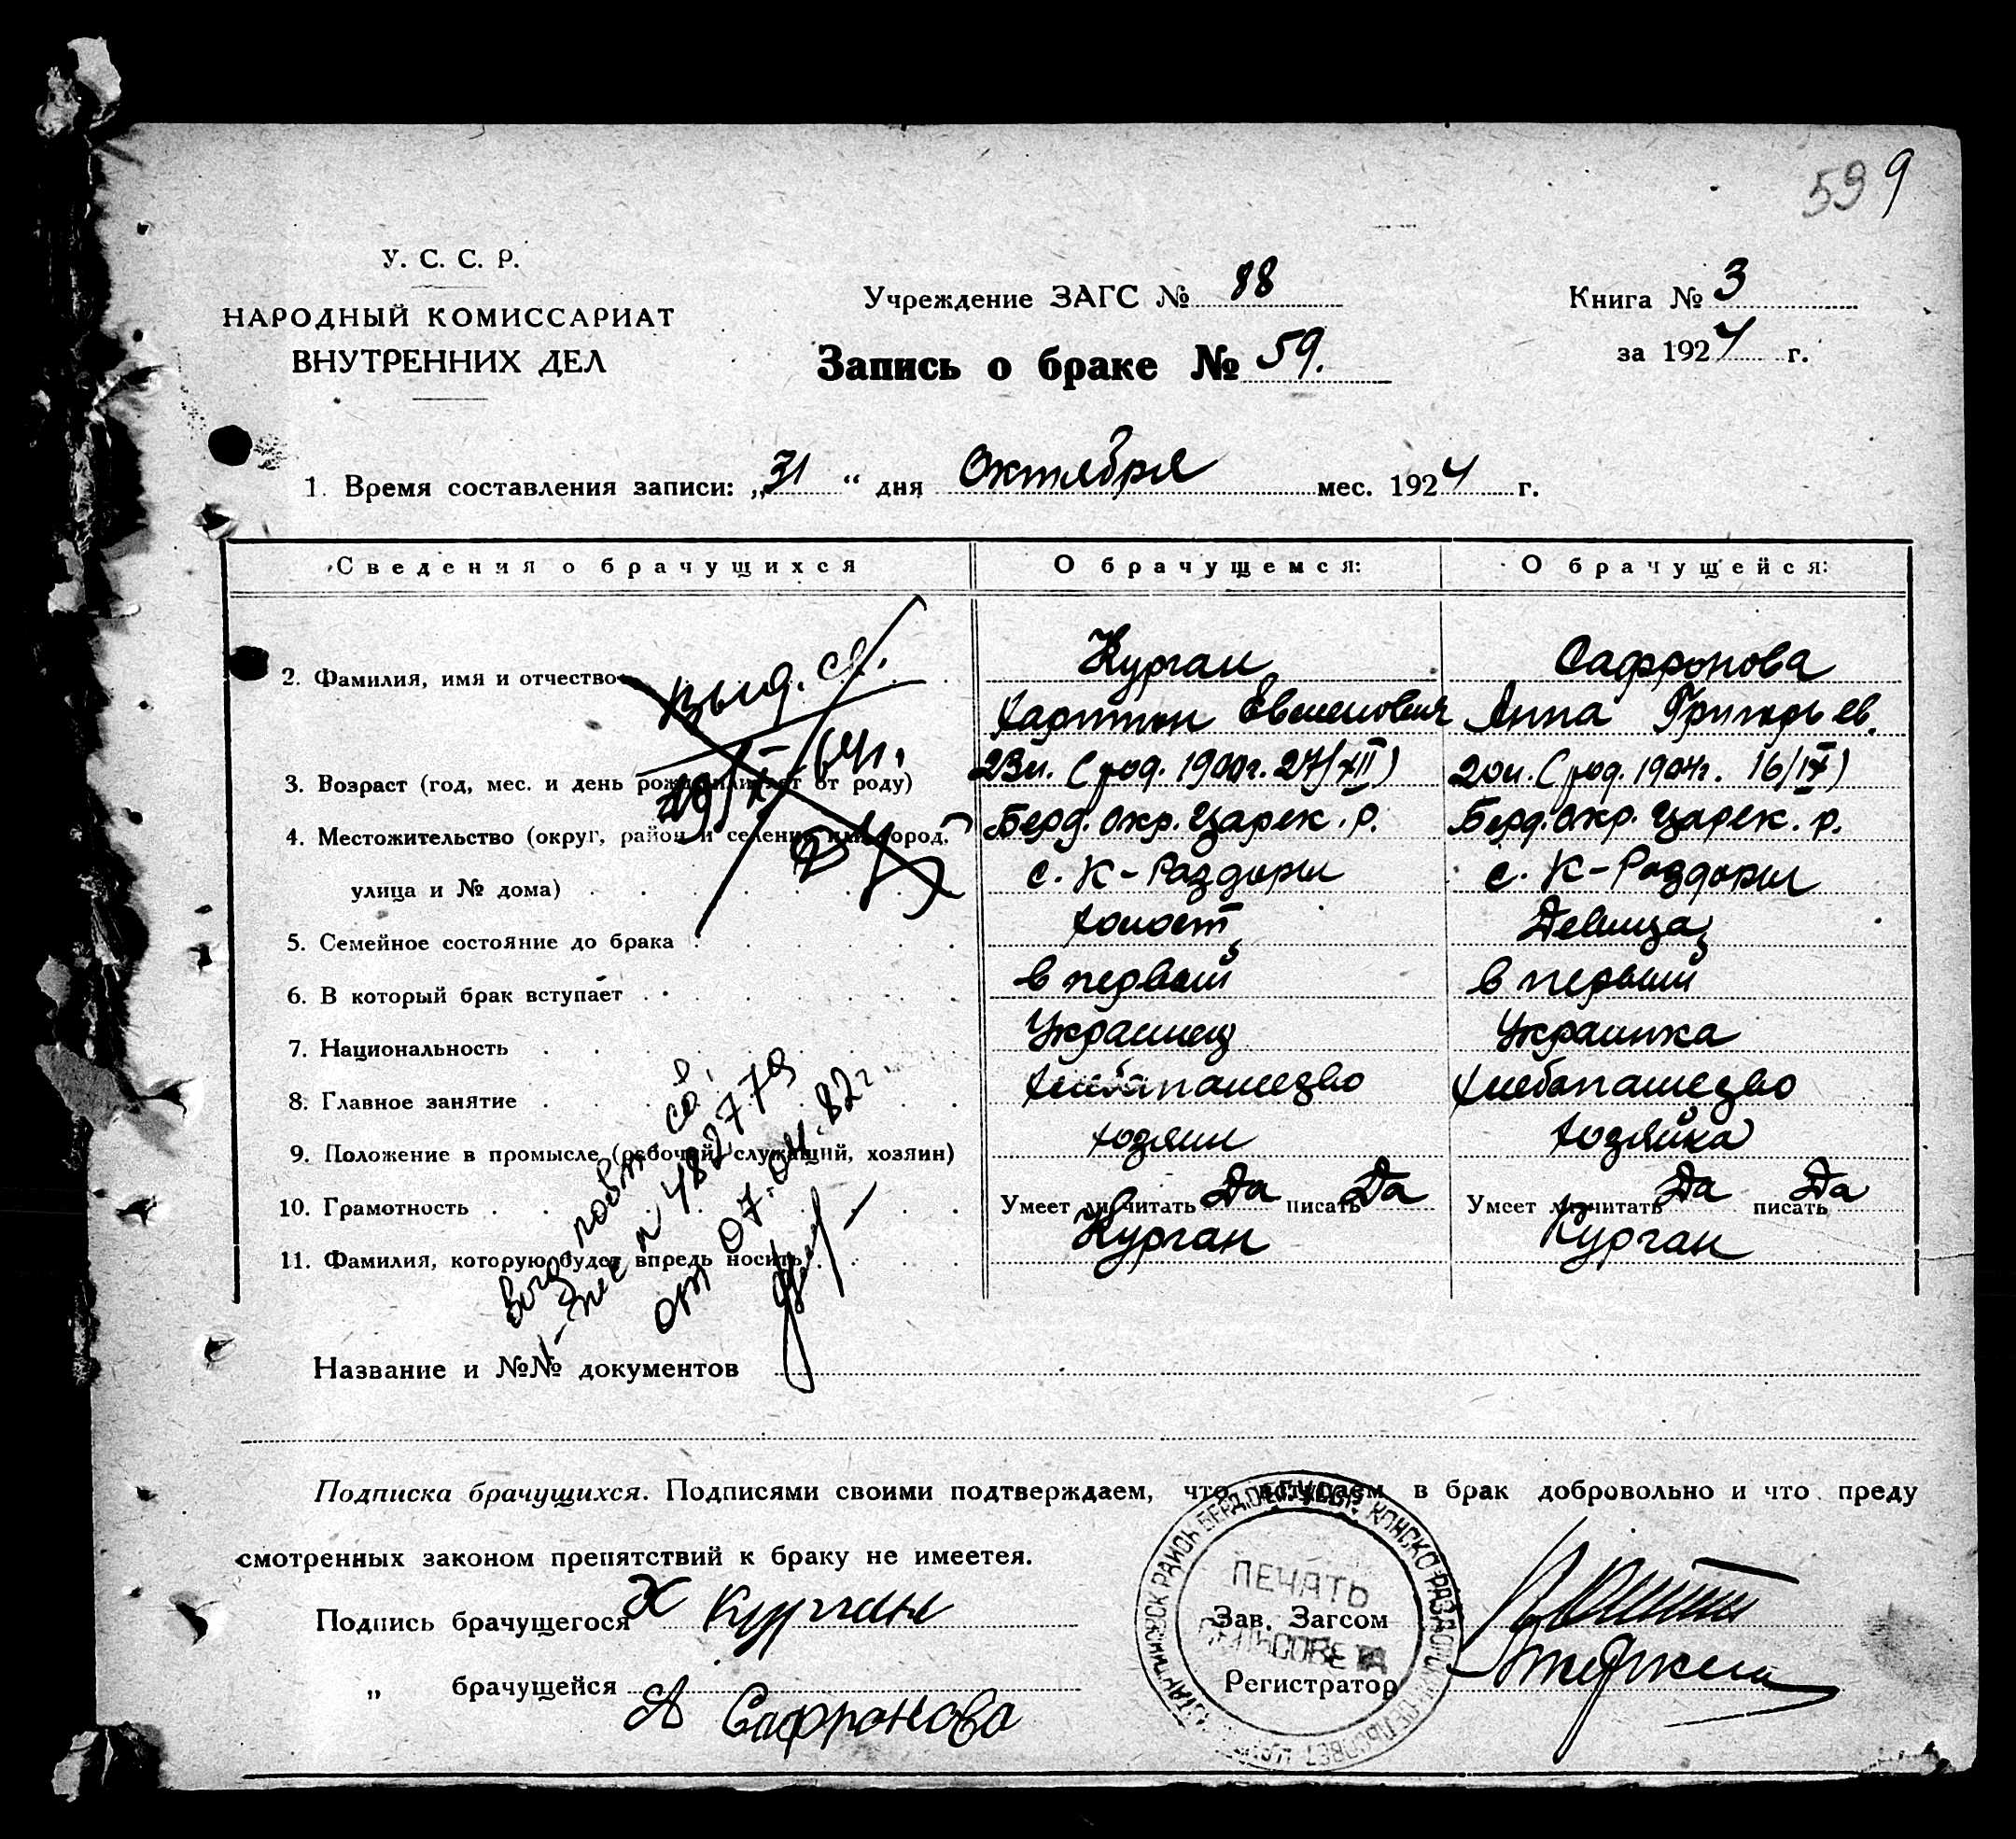 599
У. С. С. Р.
НАРОДНЫЙ КОМИССАРИАТ
ВНУТРЕННИХ ДЕЛ
Учреждение ЗАГС № 88
Книга № 3
Запись о браке № 59.
за 1924 г.
1. Время составления записи: „31“ дня Октября мес. 1924 г.
Сведения о брачущихся О брачущемся: О брачущейся:
2. Фамилия, имя и отчество Курган Сафронова
Харитон Евменович Анна Григорьев.
3. Возраст (год, мес. и день рожд. или лет от роду) 23л. (род. 1900г. 27/XII) 20л. (род. 1904г. 16/IX)
4. Местожительство (округ, район и селение или город, Берд. окр. Царек. р. Берд. окр. Царек. р.
улица и № дома) с. К-Раздоры с. К-Раздоры
5. Семейное состояние до брака холост Девица
6. В который брак вступает в первый в первый
7. Национальность Украинец Украинка
8. Главное занятие хлебопашезво хлебопашезво
9. Положение в промысле (рабочий, служащий, хозяин) хозяин хозяйка
10. Грамотность Умеет ли читать Да писать Да Умеет ли читать Да писать Да
11. Фамилия, которую будет впредь носить Курган Курган
выд. св.
выд. повт. св.
от 07.04.82г.
Название и №№ документов
Подписка брачущихся. Подписями своими подтверждаем, что вступаем в брак добровольно и что преду
смотренных законом препятствий к браку не имеетея.
Подпись брачущегося Х Курган
Зав. Загсом
„ брачущейся А Сафронова
Регистратор
ПЕЧАТЬ
СЕЛЬСОВЕТА